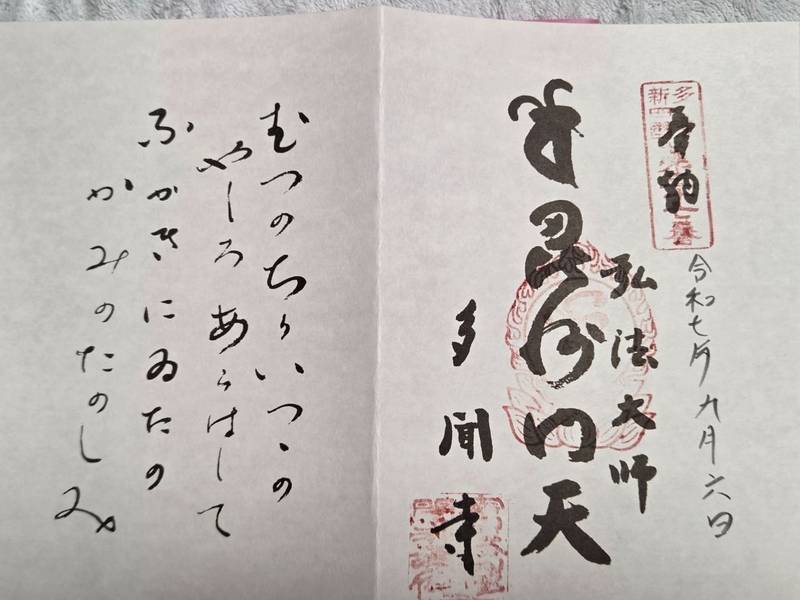 奉納
令和七年九月六日
弘法大師
毘沙門天
多聞寺
むつのちりいつゝの
やしろあらはして
ふかきにゐたの
かみのたのしみ